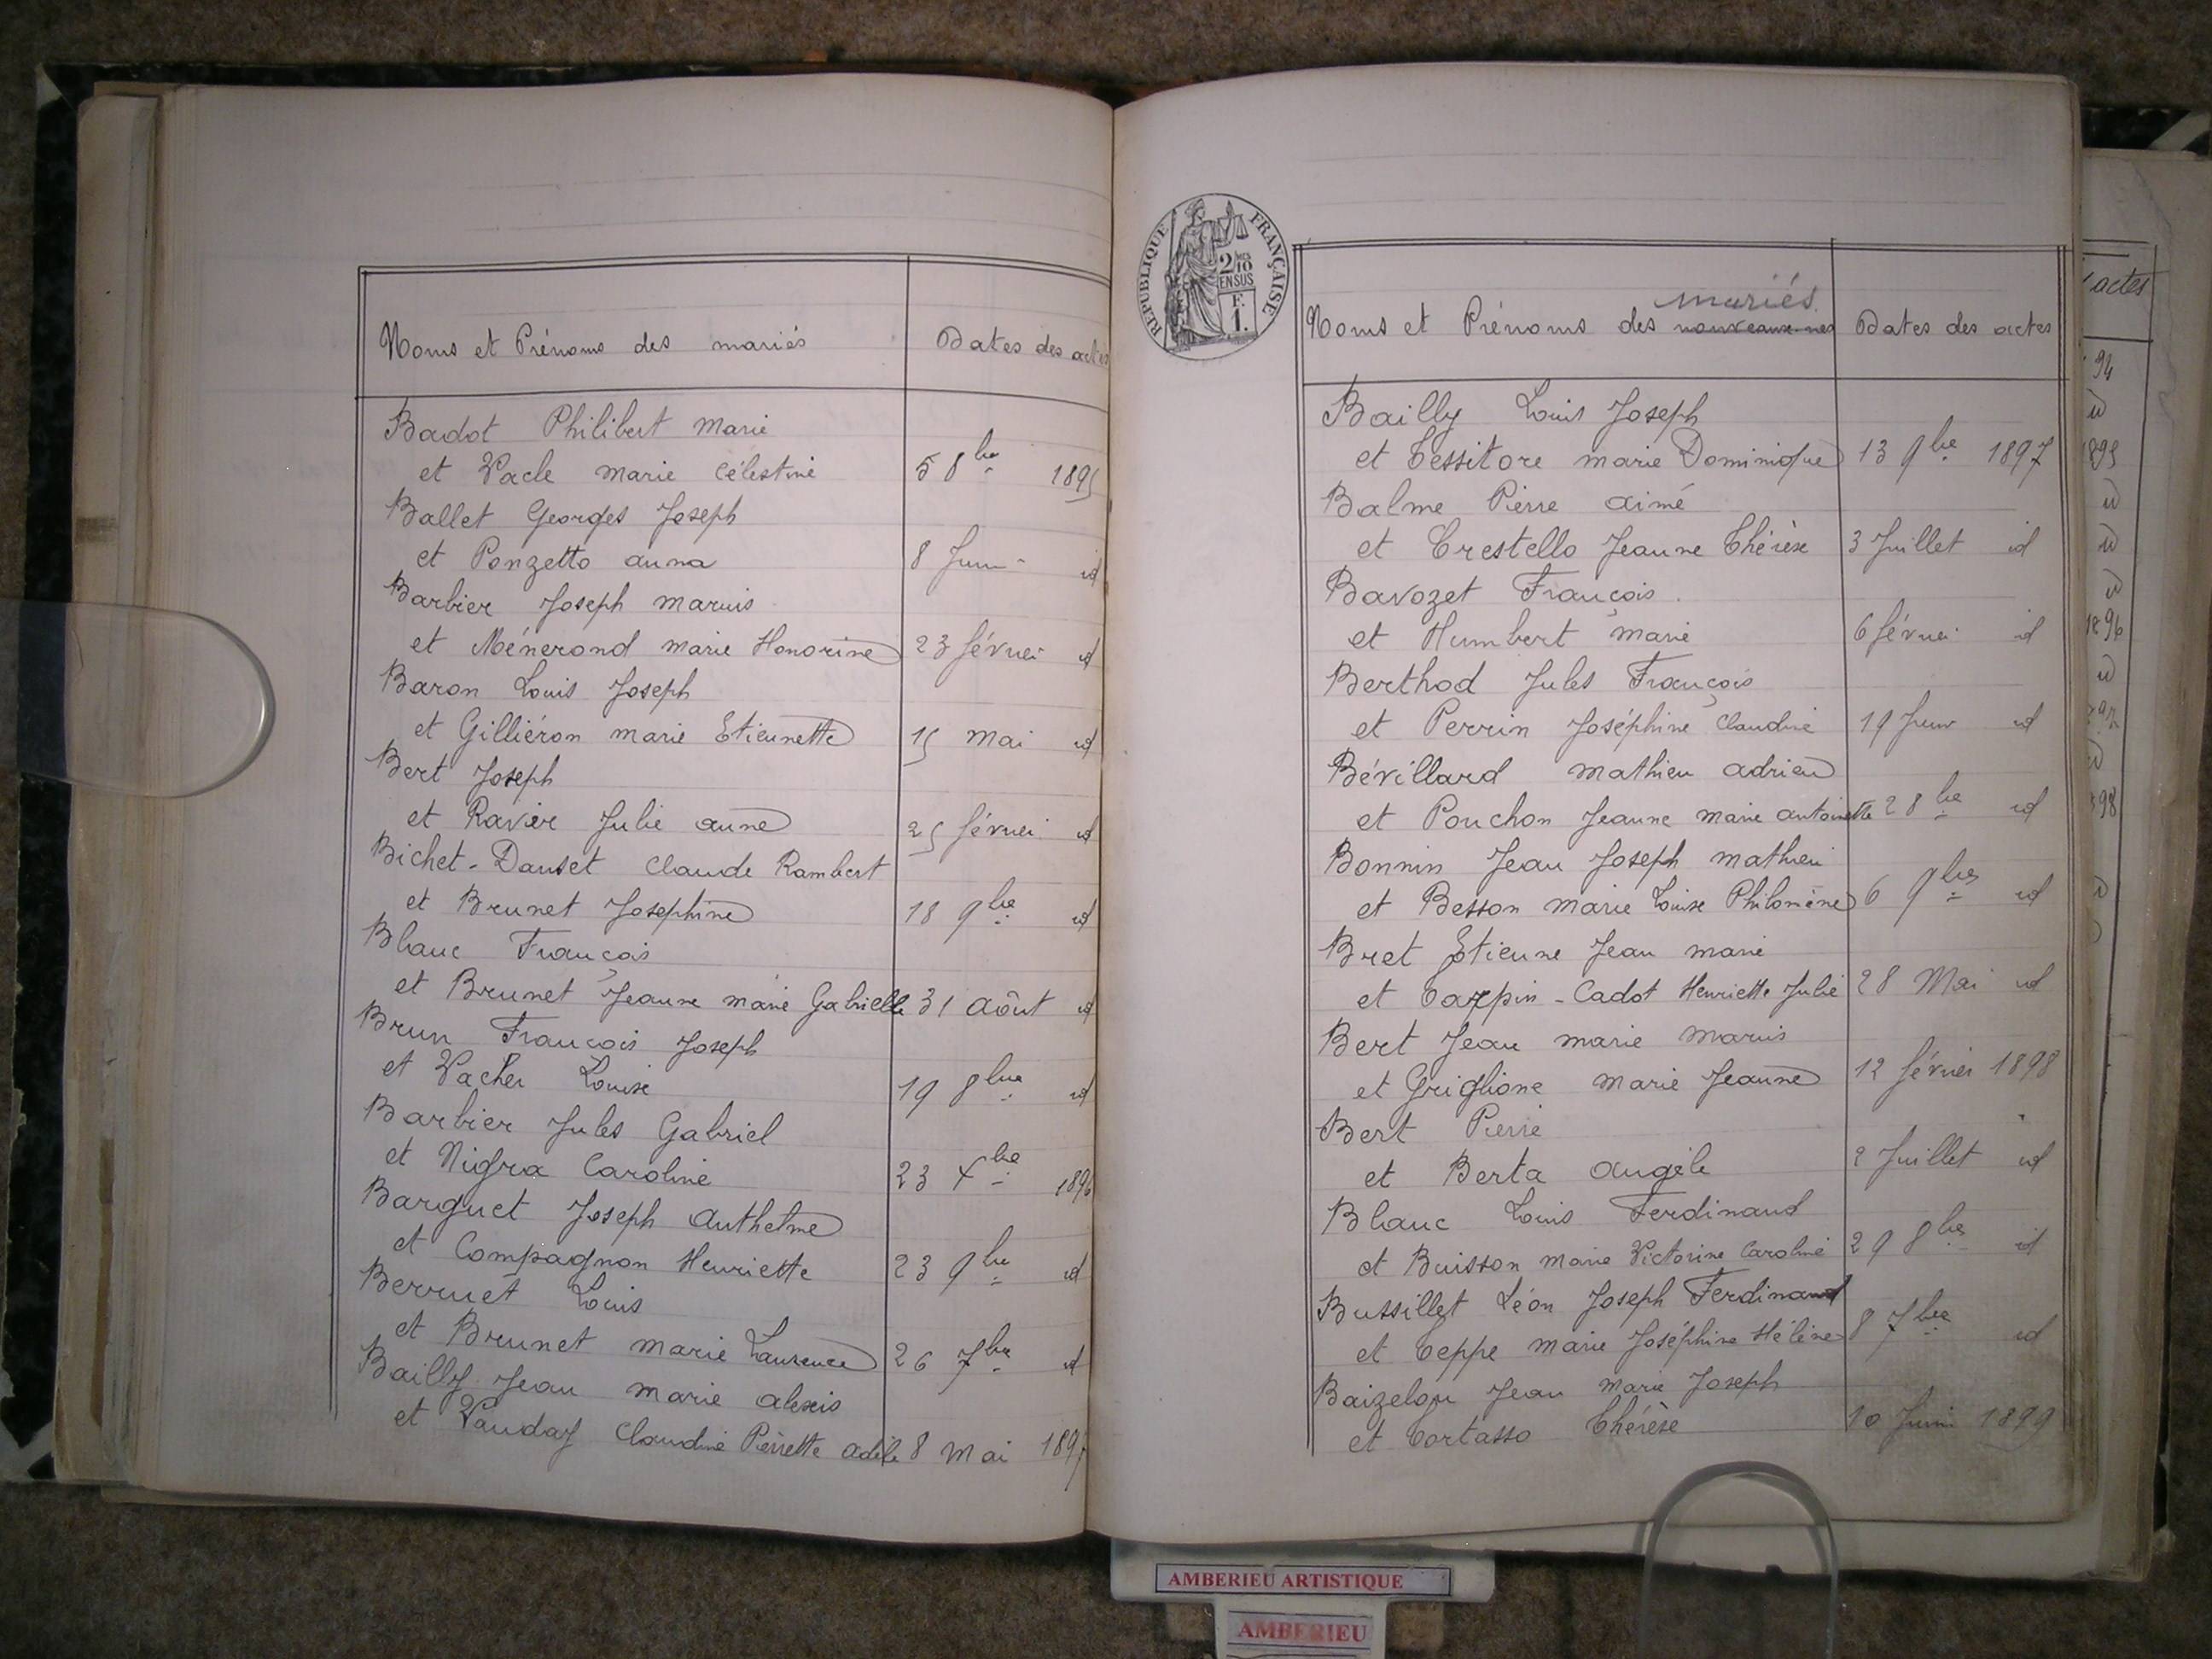 Noms et Prénoms des mariés Dates des actes
Badot Philibert Marie
et Vacle Marie Célestine 5 8bre 1895
Ballet Georges Joseph
et Ponzetto Anna 8 Juin id
Barbier Joseph Marius
et Ménerond Marie Honorine 23 février id
Baron Louis Joseph
et Gilliéron Marie Etiennette 15 Mai id
Bert Joseph
et Ravier Julie Anne 25 février id
Bichet-Danset Claude Rambert
et Brunet Joséphine 18 9bre id
Blanc François
et Brunet Jeanne Marie Gabrielle 31 Août id
Brun François Joseph
et Vacher Louise 19 8bre id
Barbier Jules Gabriel
et Nigra Caroline 23 Xbre 1896
Barguet Joseph Anthelme
et Compagnon Henriette 23 9bre id
Berruet Louis
et Brunet Marie Laurence 26 7bre id
Bailly Jean Marie Alexis
et Vauday Claudine Pierrette Adèle 8 Mai 1897
RÉPUBLIQUE FRANÇAISE
2/10
EN SUS
F.
1.
mariés
Noms et Prénoms des nouveaux-nés Dates des actes
Bailly Louis Joseph
et Tessitore Marie Dominique 13 9bre 1897
Balme Pierre Aimé
et Crestello Jeanne Thérèse 3 Juillet id
Bavozet François
et Humbert Marie 6 février id
Berthod Jules François
et Perrin Joséphine Claudine 19 Juin id
Bévillard Mathieu Adrien
et Pouchon Jeanne Marie Antoinette 2 8bre id
Bonnin Jean Joseph Mathieu
et Besson Marie Louise Philomène 6 9bre id
Bret Etienne Jean Marie
et Carpin-Cadot Henriette Julie 28 Mai id
Bert Jean Marie Marius
et Griglione Marie Jeanne 12 février 1898
Bert Pierre
et Berta Angèle 2 Juillet id
Blanc Louis Ferdinand
et Buisson Marie Victorine Caroline 29 8bre id
Bussillet Léon Joseph Ferdinand
et Ceppe Marie Joséphine Hélène 8 7bre id
Baizelon Jean Marie Joseph
et Cortasso Thérèse 10 Juin 1899
actes
94
id
1895
id
id
id
1896
id
id
98
AMBERIEU ARTISTIQUE
AMBERIEU